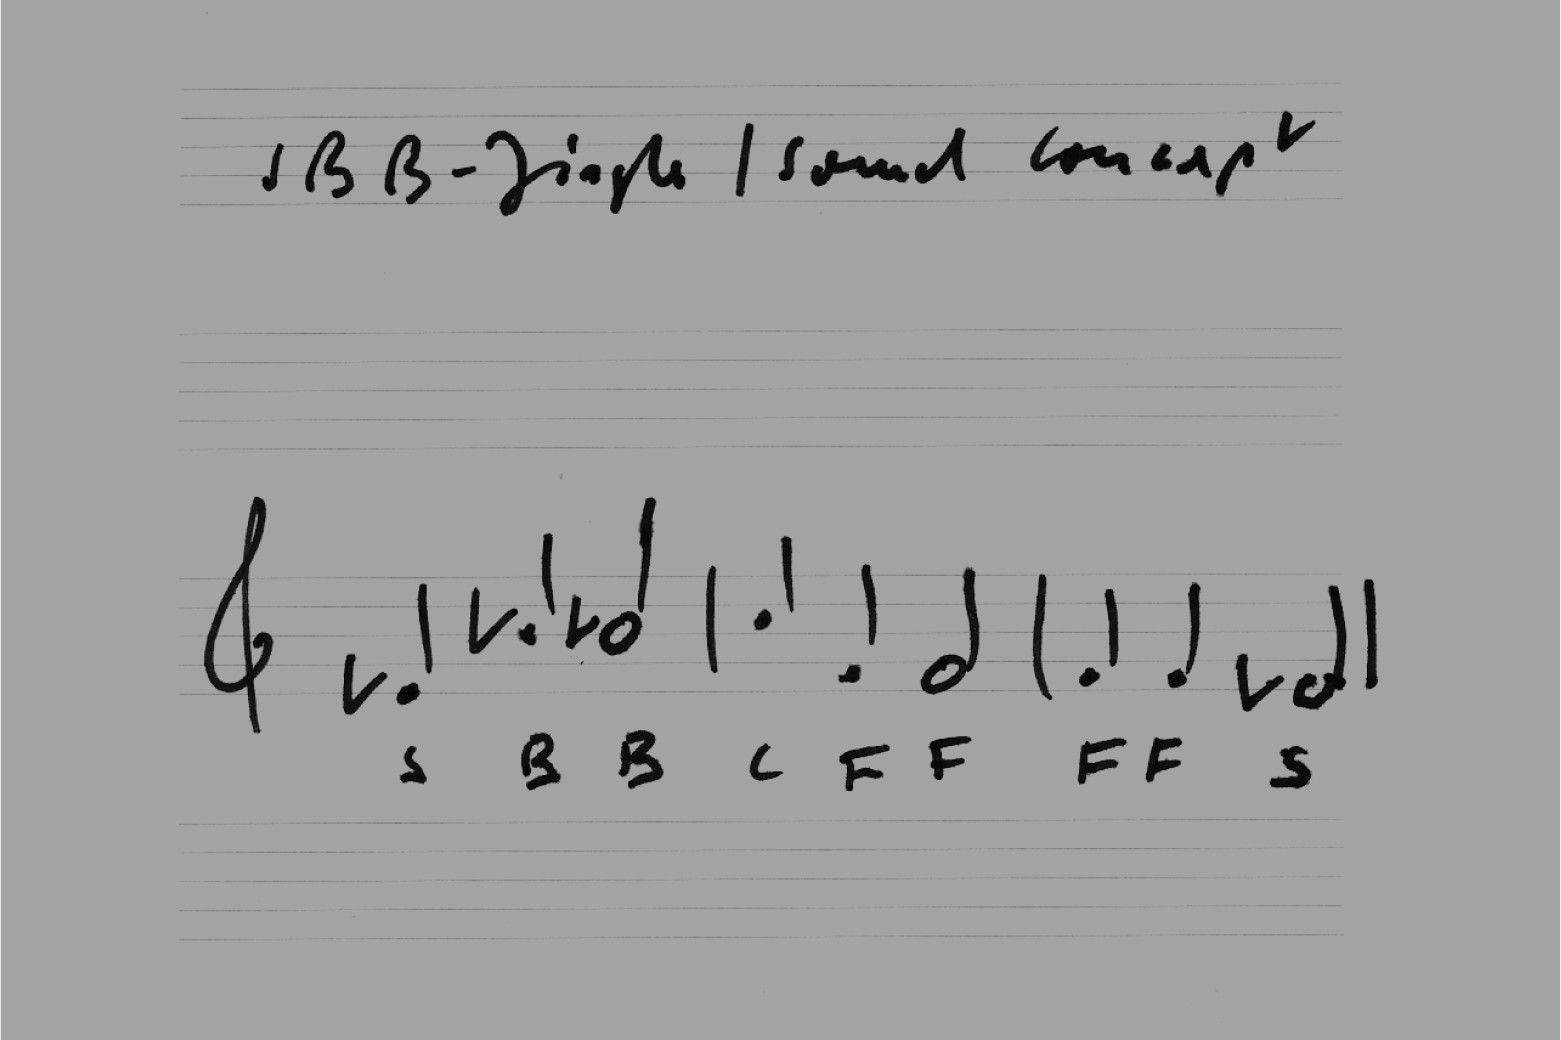 SBB-Jingle / Sound Concept
S B B C F F F F S